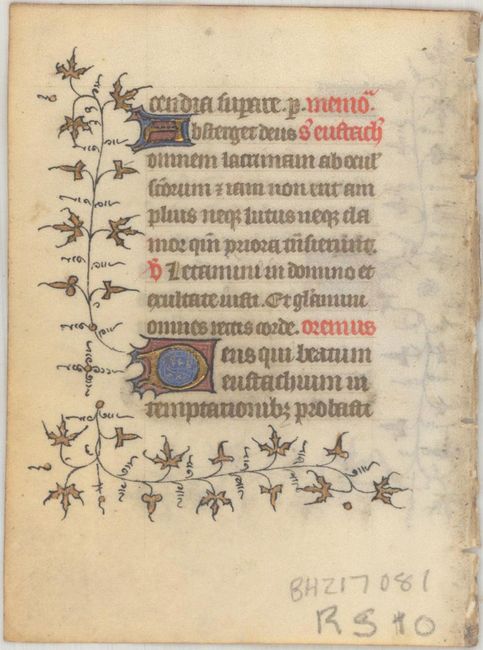 cendia supare. p. memo.
Absterget deus S eustach
omnem lacrimam ab ocul
scorum ⁊ iam non erit am
plius neq; luctus neq; cla
mor qm priora tnsierunt.
V Letamini in domino et
exultate iusti. Et glamini
omnes recti corde. oremus
Deus qui beatum
eustachium in
temptationib; probasti
BH217081
RS 10